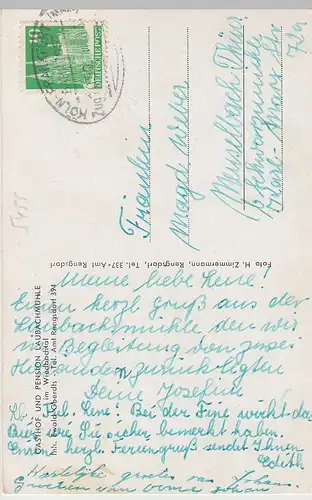 10
DEUTSCHE POST
KÖLN
Fräulein
Magd. Weber
Meuselbach Thür.
b. Schwarzmühle
72a
Foto H. Zimmermann, Rengsdorf, Tel. 337 - Amt Rengsdorf
GASTHOF UND PENSION LAUBACHMÜHLE
im Wiedbachtal
Inh. Ewald Oberdis Tel. Amt Rengsdorf 394
5455
Meine liebe Lene!
Einen herzl. Gruß aus der
Laubachsmühle den wir
in Begleitung von zwei
Holländern zurücklegten
Deine Josefine
Lb. Frl. Lene! Bei der Fine wirkt das
Bier, was Sie sicher bemerkt haben.
Einen herzl. Ferngruß sendet Ihnen
Edith
Hartelijke groeten van Johan.
Groeten van